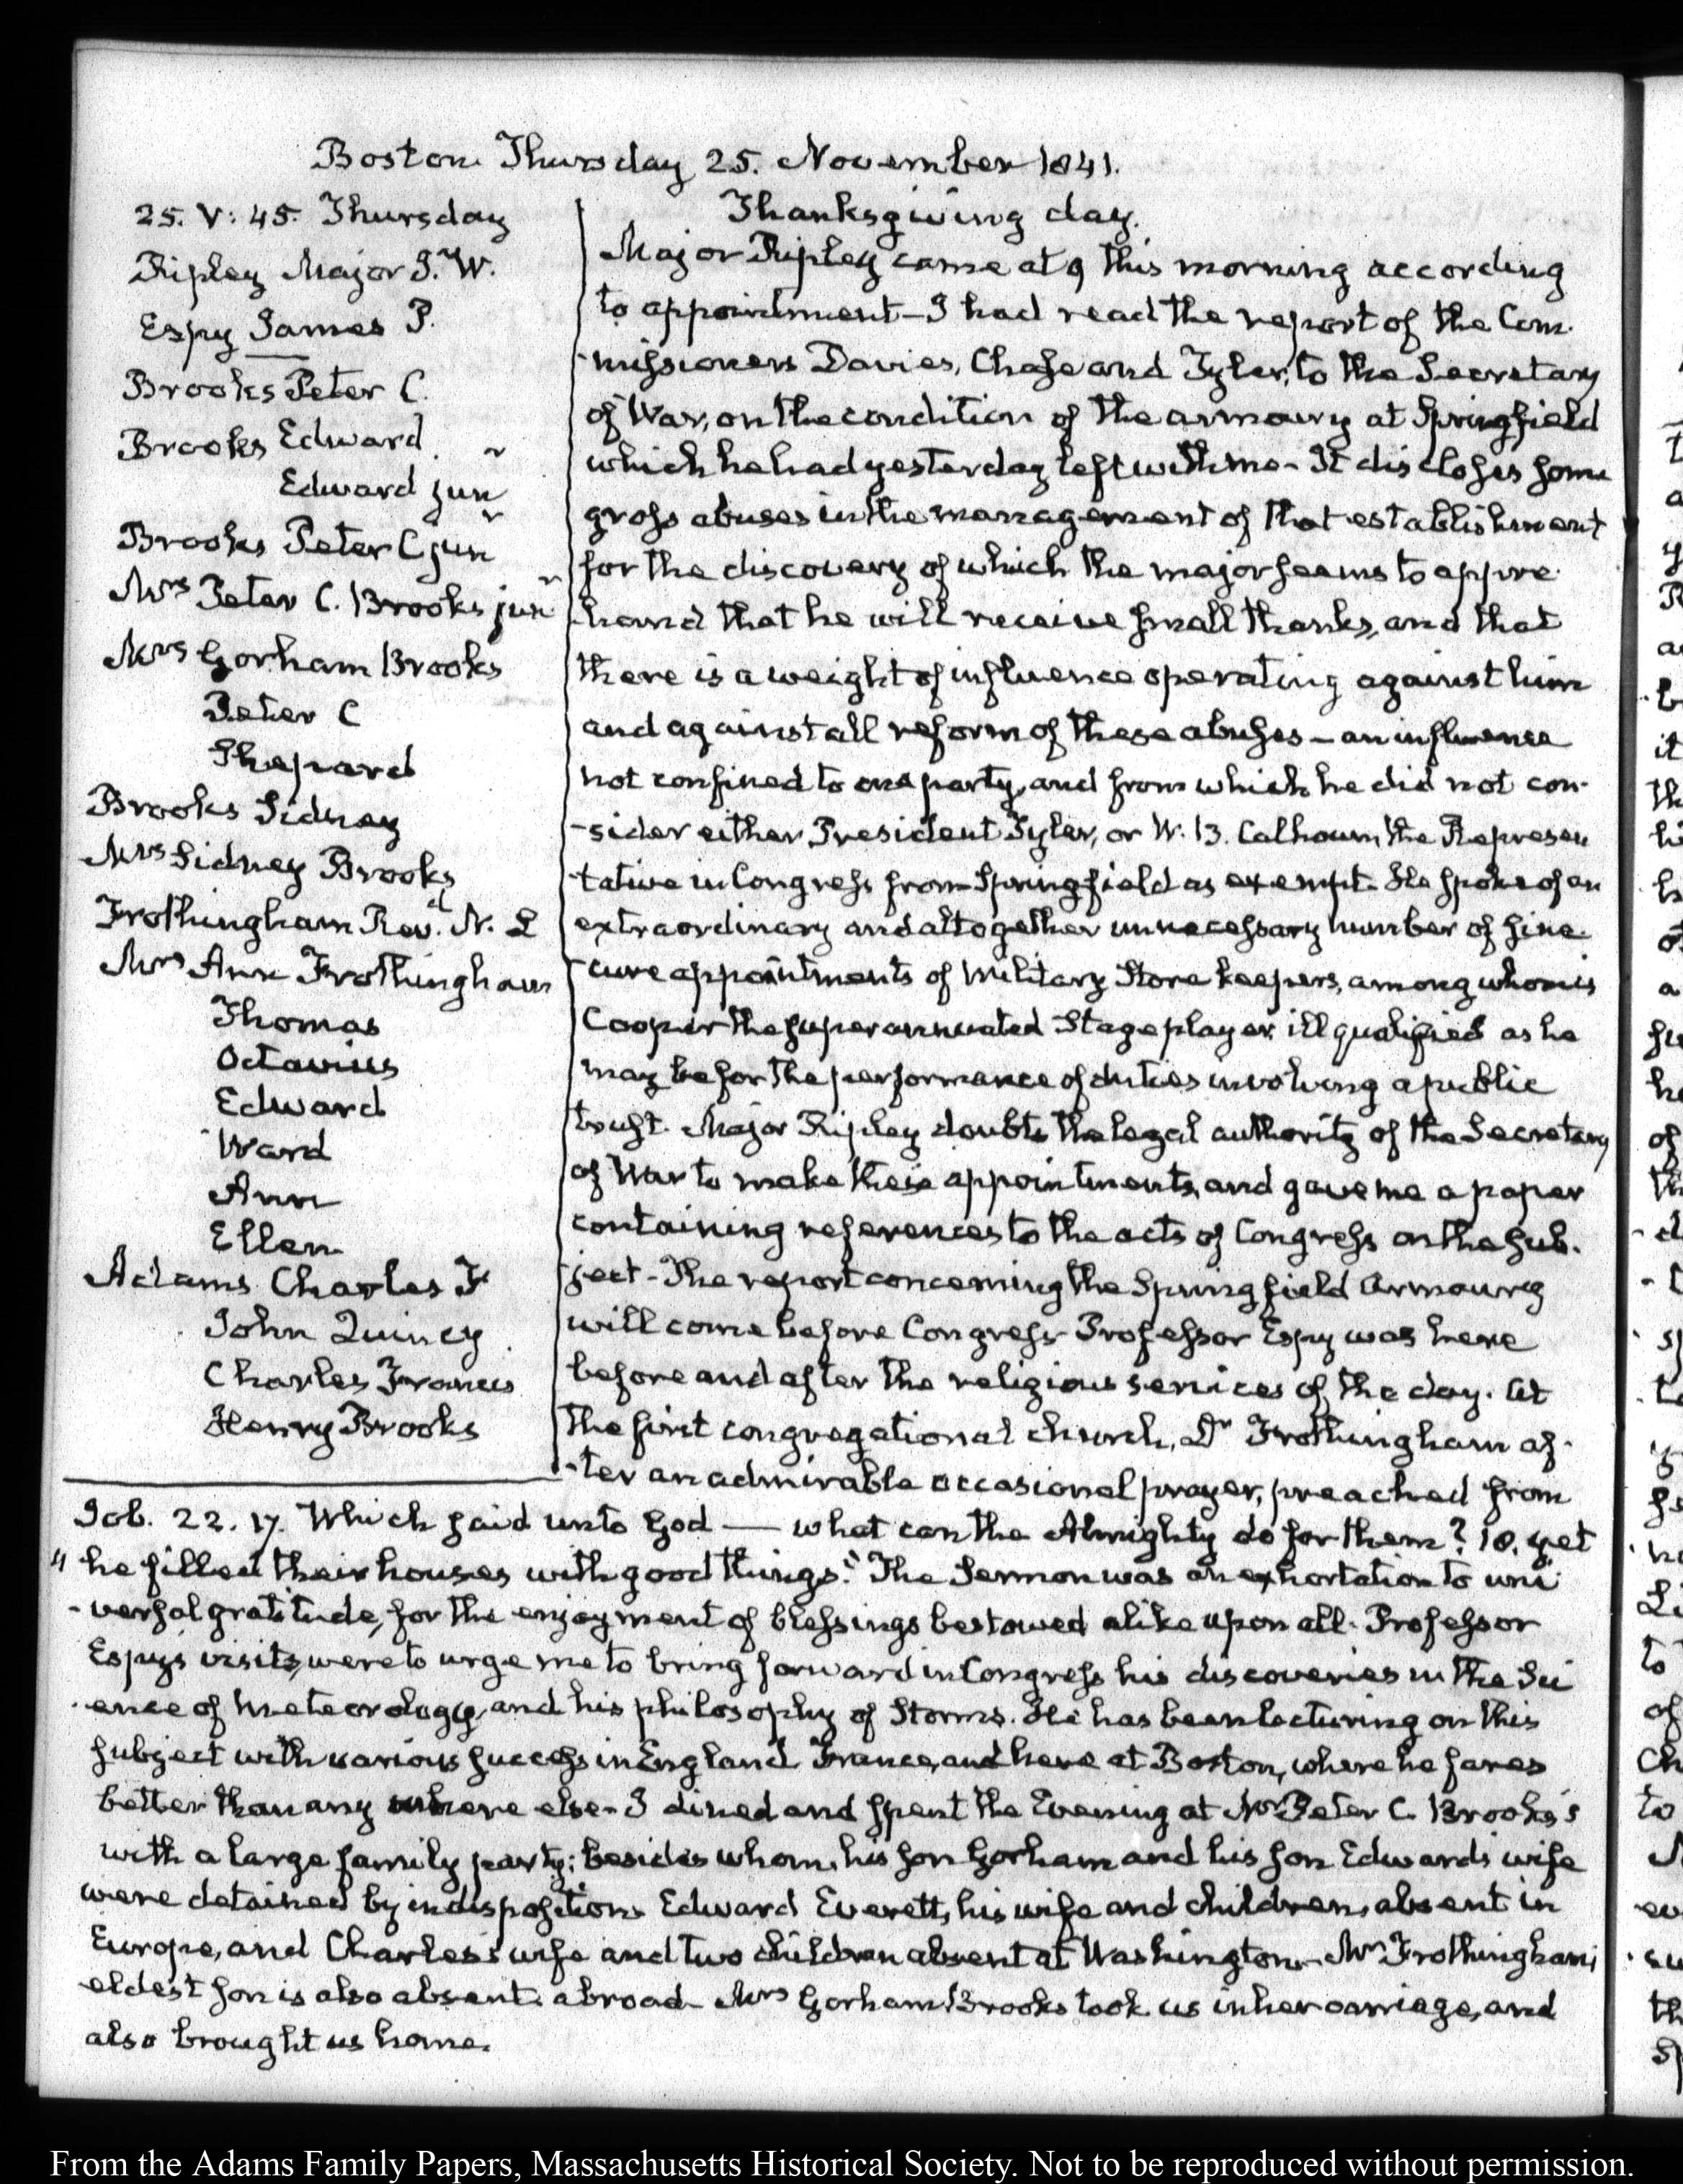 Boston Thursday 25. November 1841.
25. V: 45. Thursday
Ripley Major J. W.
Espy James P.
Brooks Peter C.
Brooks Edward
Edward junr
Brooks Peter C junr
Mrs Peter C. Brooks junr
Mrs Gorham Brooks
Peter C
Shepard
Brooks Sidney
Mrs Sidney Brooks
Frothingham Revd. N. L
Mrs Ann Frothingham
Thomas
Octavius
Edward
Ward
Ann
Ellen
Adams Charles F
John Quincy
Charles Francis
Henry Brooks
Thanksgiving day.
Major Ripley came at 9 this morning according
to appointment—I had read the report of the Com-
-missioners Davies, Chase and Tyler, to the Secretary
of War, on the condition of the armoury at Springfield
which he had yesterday left with me—It discloses some
gross abuses in the management of that establishment
for the discovery of which the major seems to appre-
-hend that he will receive small thanks, and that
there is a weight of influence operating against him
and against all reform of these abuses—an influence
not confined to one party, and from which he did not con-
-sider either President Tyler, or W. B. Calhoun, the Represen
-tative in Congress from Springfield as exempt. He spoke of an
extraordinary and altogether unnecessary number of sine-
-cure appointments of Military Store keepers, among whom is
Cooper the superannuated Stage player, ill qualified as he
may be for the performance of duties involving a public
trust. Major Ripley doubts the legal authority of the Secretary
of War to make these appointments, and gave me a paper
containing references to the acts of Congress on the sub-
-ject—The report concerning the Springfield Armoury
will come before Congress. Professor Espy was here
before and after the religious services of the day. At
the first congregational church, Dr Frothingham af-
-ter an admirable occasional prayer, preached from
Job. 22. 17. Which said unto God — what can the Almighty do for them? 18. yet
"he filled their houses with good things." The Sermon was an exhortation to uni
-versal gratitude, for the enjoyment of blessings bestowed alike upon all. Professor
Espy's visits, were to urge me to bring forward in Congress his discoveries in the Sci
-ence of meteorology, and his philosophy of Storms. He has been lecturing on this
subject with various success in England France, and here at Boston, where he fares
better than any where else—I dined and spent the Evening at Mr Peter C. Brooks's
with a large family party; besides whom, his son Gorham and his son Edward's wife
were detained by indisposition. Edward Everett, his wife and children, absent in
Europe, and Charles's wife and two children absent at Washington—Mr Frothingham's
eldest son is also absent abroad—Mrs Gorham Brooks took us in her carriage, and
also brought us home.
From the Adams Family Papers, Massachusetts Historical Society. Not to be reproduced without permission.